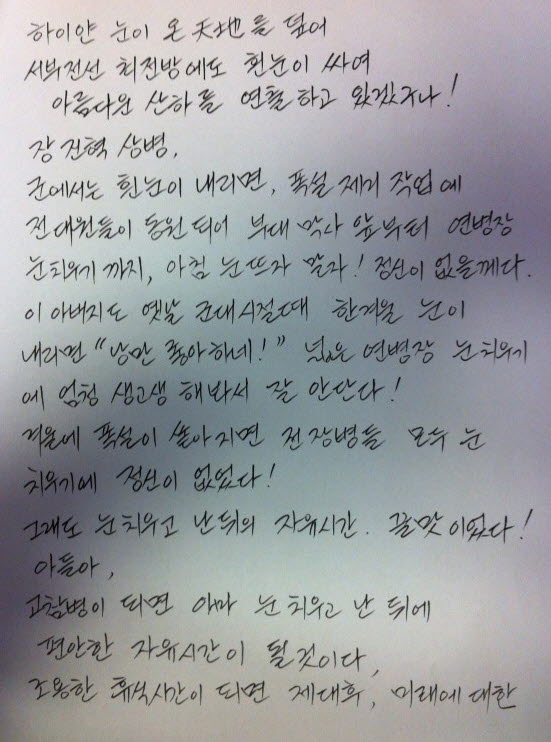 하이얀 눈이 온 天地를 덮어
서부전선 최전방에도 흰눈이 싸여
아름다운 산하를 연출하고 있겠구나!
장진혁 상병,
군에서는 흰눈이 내리면, 폭설 제거 작업에
전 대원들이 동원되어 부대 막사 앞부터 연병장
눈치우기까지, 아침 눈뜨자 말자! 정신이 없을께다.
이 아버지도 옛날 군대시절때 한겨울 눈이
내리면 "낭만 좋아하네!" 넓은 연병장 눈치우기
에 엄청 생고생 해봐서 잘 안단다!
겨울에 폭설이 쏟아지면 전 장병들 모두 눈
치우기에 정신이 없었다!
그래도 눈치우고 난 뒤의 자유시간. 꿀맛이었다!
아들아,
고참병이 되면 아마 눈치우고 난 뒤에
편안한 자유시간이 될 것이다,
조용한 휴식시간이 되면 제대후, 미래에 대한